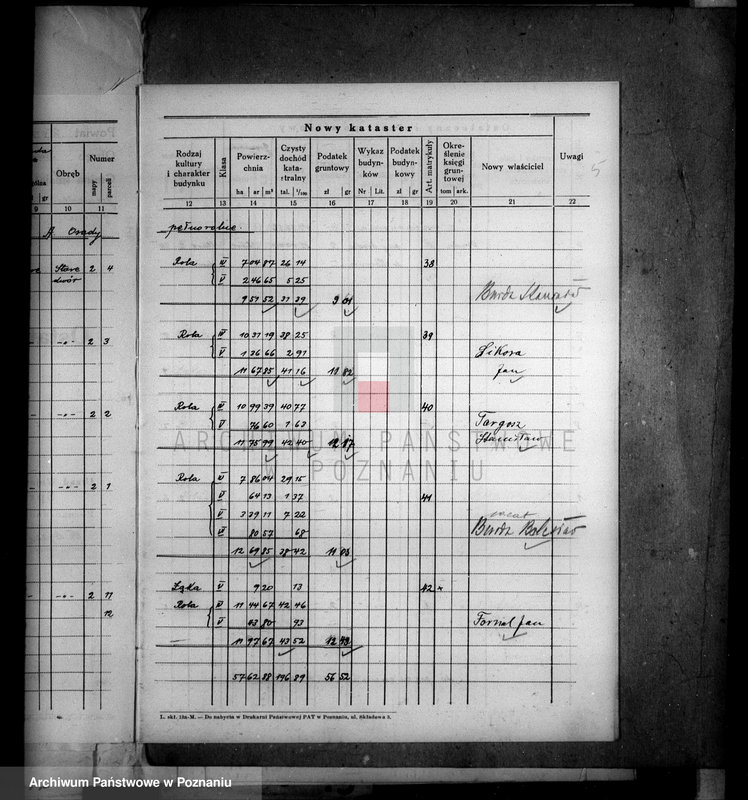 Nowy kataster
Numer
Obręb
mapy
parceli
gr
9 10 11
Rodzaj kultury i charakter budynku
Klasa
Powierzchnia
ha ar m²
Czysty dochód katastralny
tal. 1/100
Podatek gruntowy
zł gr
Wykaz budynków
Nr Lit.
Podatek budynkowy
zł gr
Art. matrykuły
Określenie księgi gruntowej
tom ark.
Nowy właściciel
Uwagi
12 13 14 15 16 17 18 19 20 21 22
A Osady
pełnorolne
Stare dwór 2 4
Rola IV 7 04 87 26 14 38
V 2 46 65 5 25
9 51 52 31 39 9 01
Burda
-„- 2 3
Rola IV 10 31 19 38 25 39
V 1 36 66 2 91 Sikora
11 67 85 41 16 11 82 Jan
-„- 2 2
Rola IV 10 99 39 40 77 40
V 76 60 1 63 Targosz
11 75 99 42 40 12 17 Stanisław
-„- 2 1
Rola IV 7 86 04 29 15
V 64 13 1 37 41
V 3 39 11 7 22
VI 80 57 68 Burda
12 69 85 38 42 11 03
-„- 2 11
12
Łąka V 9 20 13 42
Rola IV 11 44 67 42 46
V 43 80 93 Fornal Jan
11 97 67 43 52 12 49
57 62 88 196 89 56 52
5
L. skł. 12a-M. — Do nabycia w Drukarni Państwowej PAT w Poznaniu, ul. Składowa 3.
ARCHIWUM PAŃSTWOWE
W POZNANIU
Archiwum Państwowe w Poznaniu